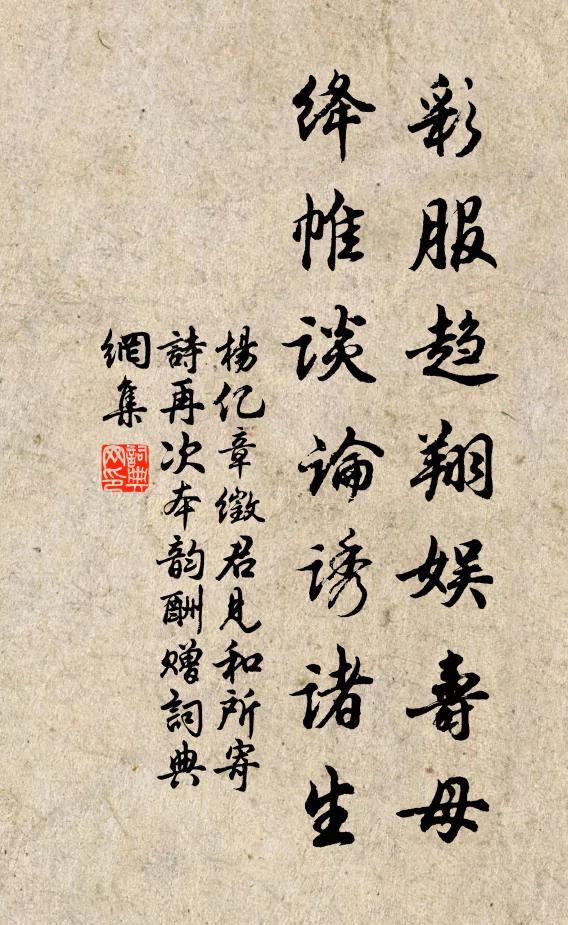 彩服趋翔娱壽母
绛帷谈論诱諸生
楊亿章徵君見和所寄
詩再次本韵酬赠詞典
網集
詞典網印